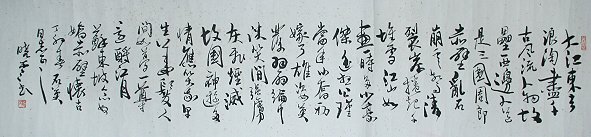 大江東去
浪淘盡千
古風流人物故
壘西邊人道
是三國周郎
赤壁亂石
崩雲驚濤
裂岸捲起千
堆雪江山如
畫一時多少豪
傑遙想公瑾
當年小喬初
嫁了雄姿英
發羽扇綸巾
談笑間強虜
灰飛煙滅
故國神遊多
情應笑我早
生華髮人
間如夢一尊
還酹江月
蘇東坡念奴
嬌赤壁懷古